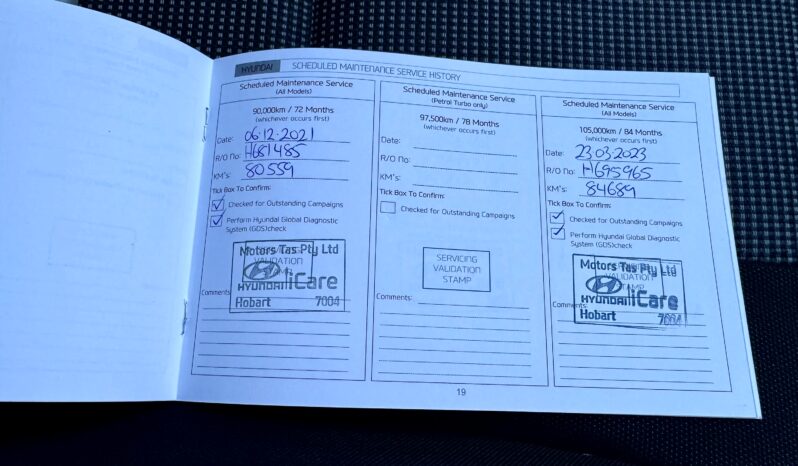 HYUNDAI SCHEDULED MAINTENANCE SERVICE HISTORY
Scheduled Maintenance Service
(All Models)
90,000km / 72 Months
(whichever occurs first)
Date: 06.12.2021
R/O No: H681485
KM's: 80559
Tick Box To Confirm:
Checked for Outstanding Campaigns
Perform Hyundai Global Diagnostic
System (GDS)check
Motors Tas Pty Ltd
VALIDATION
STAMP
HYUNDAI iCare
Hobart 7004
Comments:
Scheduled Maintenance Service
(Petrol Turbo only)
97,500km / 78 Months
(whichever occurs first)
Date:
R/O No:
KM's:
Tick Box To Confirm:
Checked for Outstanding Campaigns
SERVICING
VALIDATION
STAMP
Comments:
Scheduled Maintenance Service
(All Models)
105,000km / 84 Months
(whichever occurs first)
Date: 23.03.2023
R/O No: H695965
KM's: 84689
Tick Box To Confirm:
Checked for Outstanding Campaigns
Perform Hyundai Global Diagnostic
System (GDS)check
Motors Tas Pty Ltd
VALIDATION
STAMP
HYUNDAI iCare
Hobart 7004
Comments:
19